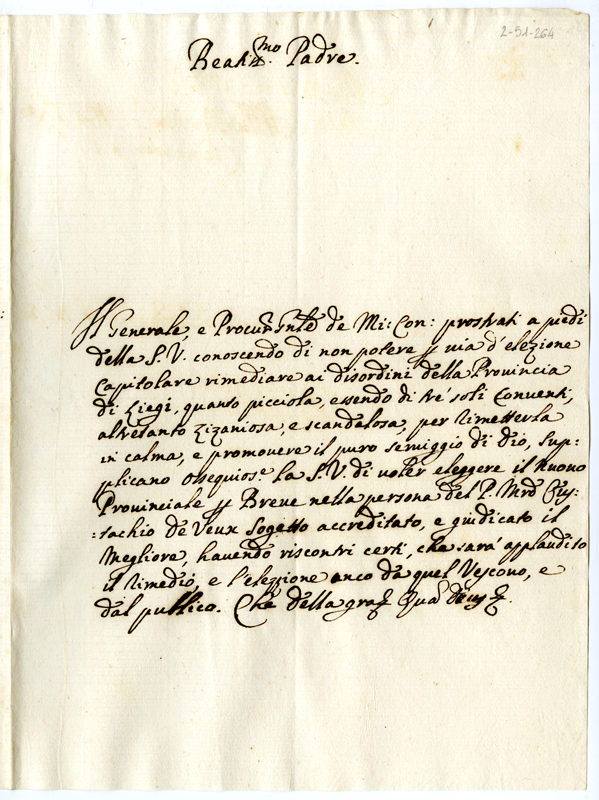 2-51-264
Beatis.mo Padre.
Il Generale, e Procur: Gnle de Mi: Con: prostrati a piedi
della S. V. conoscendo di non potere p via d'elezione
Capitolare rimediare ai disordini della Provincia
di Liegi, quanto picciola, essendo di tre soli Conventi,
altretanto Zizaniosa, e scandalosa, per rimetterla
in calma, e promovere il puro serviggio di Dio, sup-
plicano ossequios.e la S. V. di voler eleggere il Nuovo
Provinciale p Breve nella persona del P. Mro Eus:
:tachio De Veux Sogetto accreditato, e giudicato il
Megliore, havendo riscontri certi, che sarà applaudito
il rimedio, e l'elezzione anco da quel Vescovo, e
dal publico. Che della graz Qua Deus